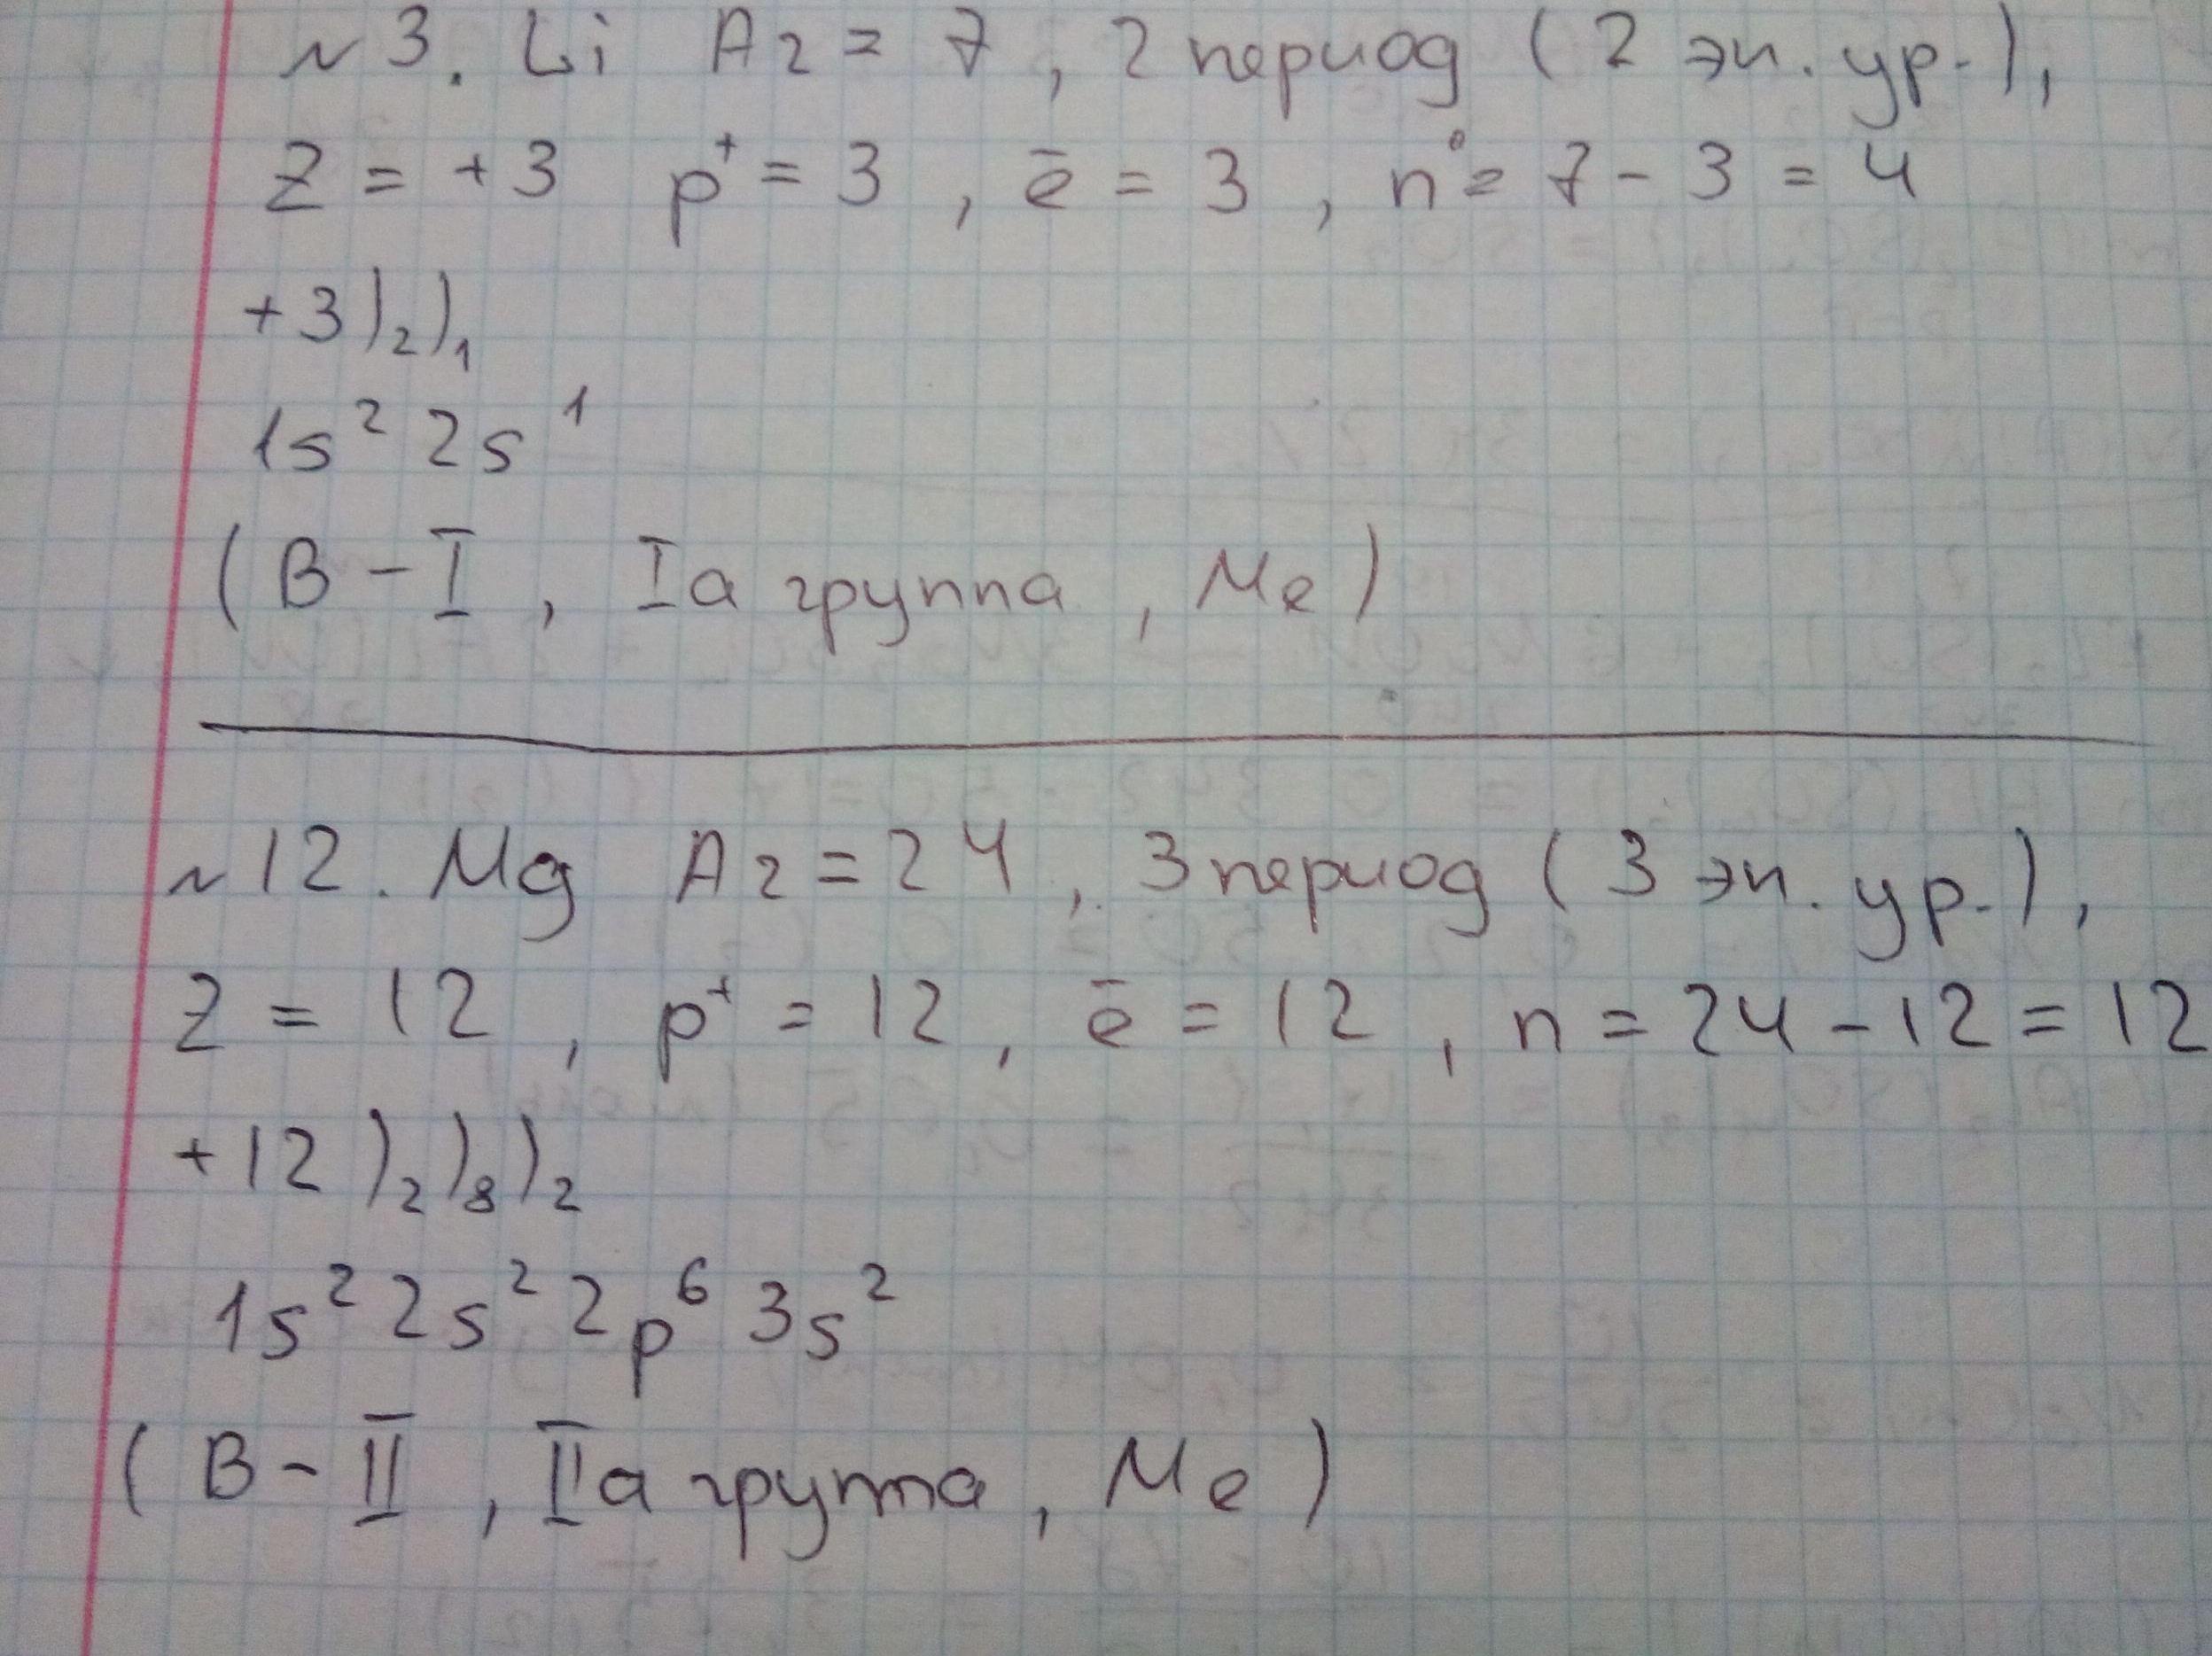 №3. Li Ar = 7, 2 период (2 эн. ур.),
Z = +3 p⁺ = 3, e̅ = 3, n° = 7 - 3 = 4
+3)₂)₁
1s² 2s¹
(В - I, Iа группа, Me)
№12. Mg Ar = 24, 3 период (3 эн. ур.),
Z = 12, p⁺ = 12, e̅ = 12, n = 24 - 12 = 12
+12)₂)₈)₂
1s² 2s² 2p⁶ 3s²
(В - II, IIа группа, Me)